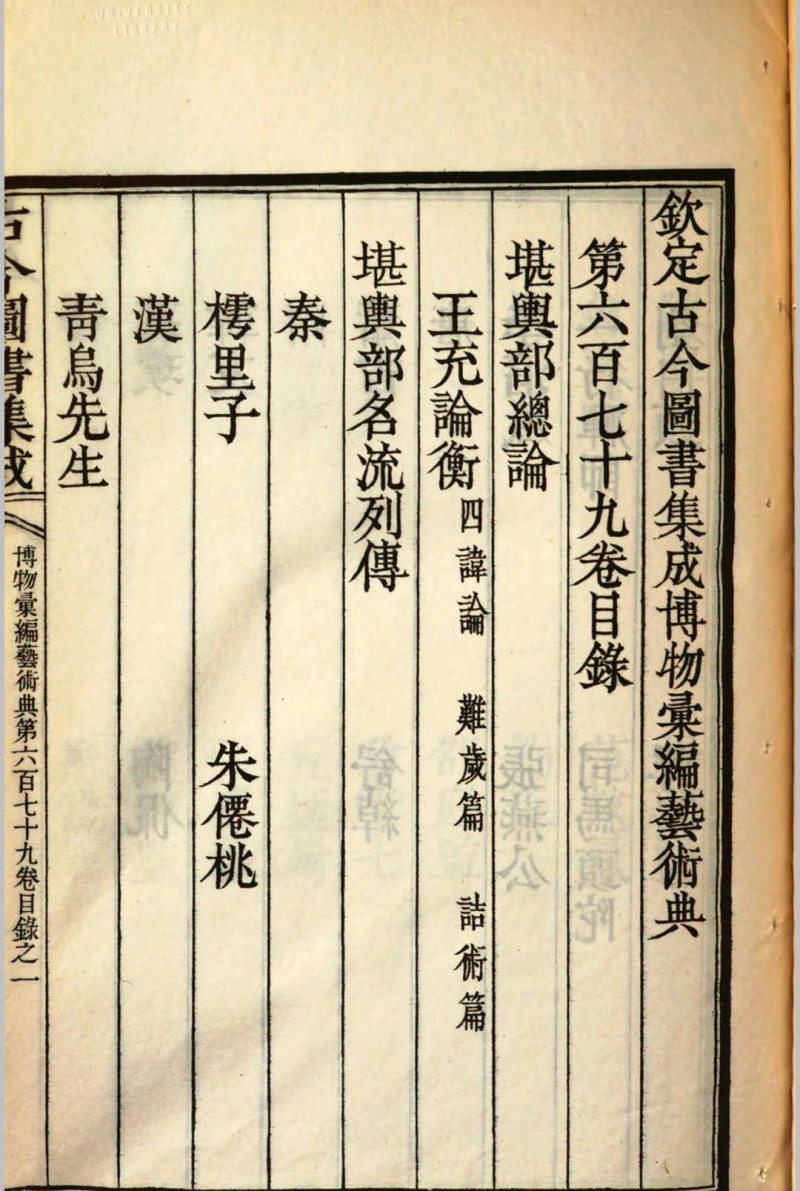 欽定古今圖書集成博物彙編藝術典
第六百七十九卷目錄
堪輿部總論
王充論衡 四諱論 難歲篇 詰術篇
堪輿部名流列傳
秦
樗里子 朱僊桃
漢
青烏先生
古今圖書集成
博物彙編藝術典第六百七十九卷目錄之一
UNIVERSITY
LIBRARY